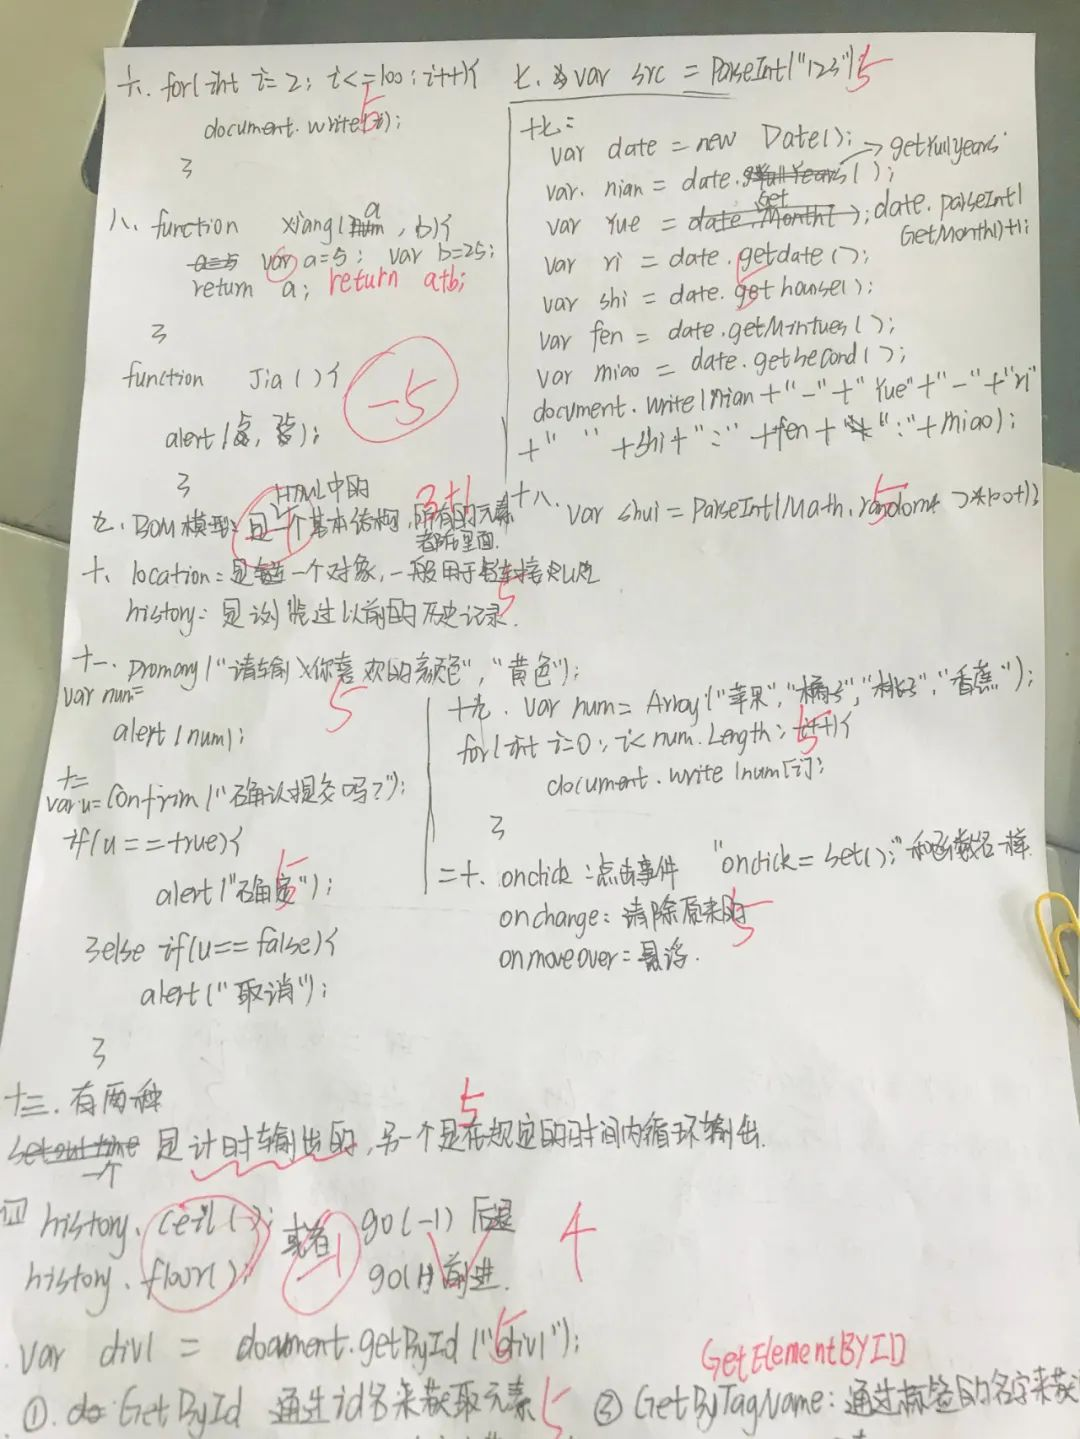 六. for(int i=2; i<=100; i++){
document.write(i);
5
}
八、function xiang(a, b){
var a=5; var b=25;
return a; return a+b;
}
function Jia(){
-5
alert( , );
}
九. BOM模型: 是一个HTML中的基本结构, 所有的元素
都在里面.
-1
3+1
十、location: 是 一个对象, 一般用于 连接
history: 是浏览过以前的历史记录.
5
十一. Dromany("请输入你喜欢的颜色", "黄色");
var num=
alert(num);
5
十二
var u= Confrim("确认提交吗?");
if(u==true){
alert("确定");
5
}else if(u==false){
alert("取消");
}
七. var src = ParseInt("123")
5
十七:
var date = new Date();
var. nian = date. (); → getFullyears
var Yue = date.parseInt(
GetMonth()+1);
var ri = date.getdate();
var shi = date.gethouse();
5
var fen = date.getMintues();
var miao = date.getsecond();
document.write(Nian+"-"+"Yue"+"-"+"ri"
+" "+shi+":"+fen+":"+miao);
十八. var shui = ParseInt(Math.random *100+1);
5
十九. var num= Array("苹果","橘子","桃子","香蕉");
for(int i=0; i<num.Length; i++){
5
document.write(num[i];
}
二十. onclick:点击事件 "onclick=set();"和函数名一样.
onchange: 清除原来的
5
onmoveover: 悬浮.
十三. 有两种
5
一个 是计时输出的, 另一个是在规定的时间内循环输出.
四 history.ceil(); 或者 go(-1) 后退
-1
4
history.floor(); go(1) 前进.
var div1 = document.getById("div1");
5
GetElementBYID
①. GetById 通过id名来获取元素 5 ② GetByTagName: 通过标签的名字来获